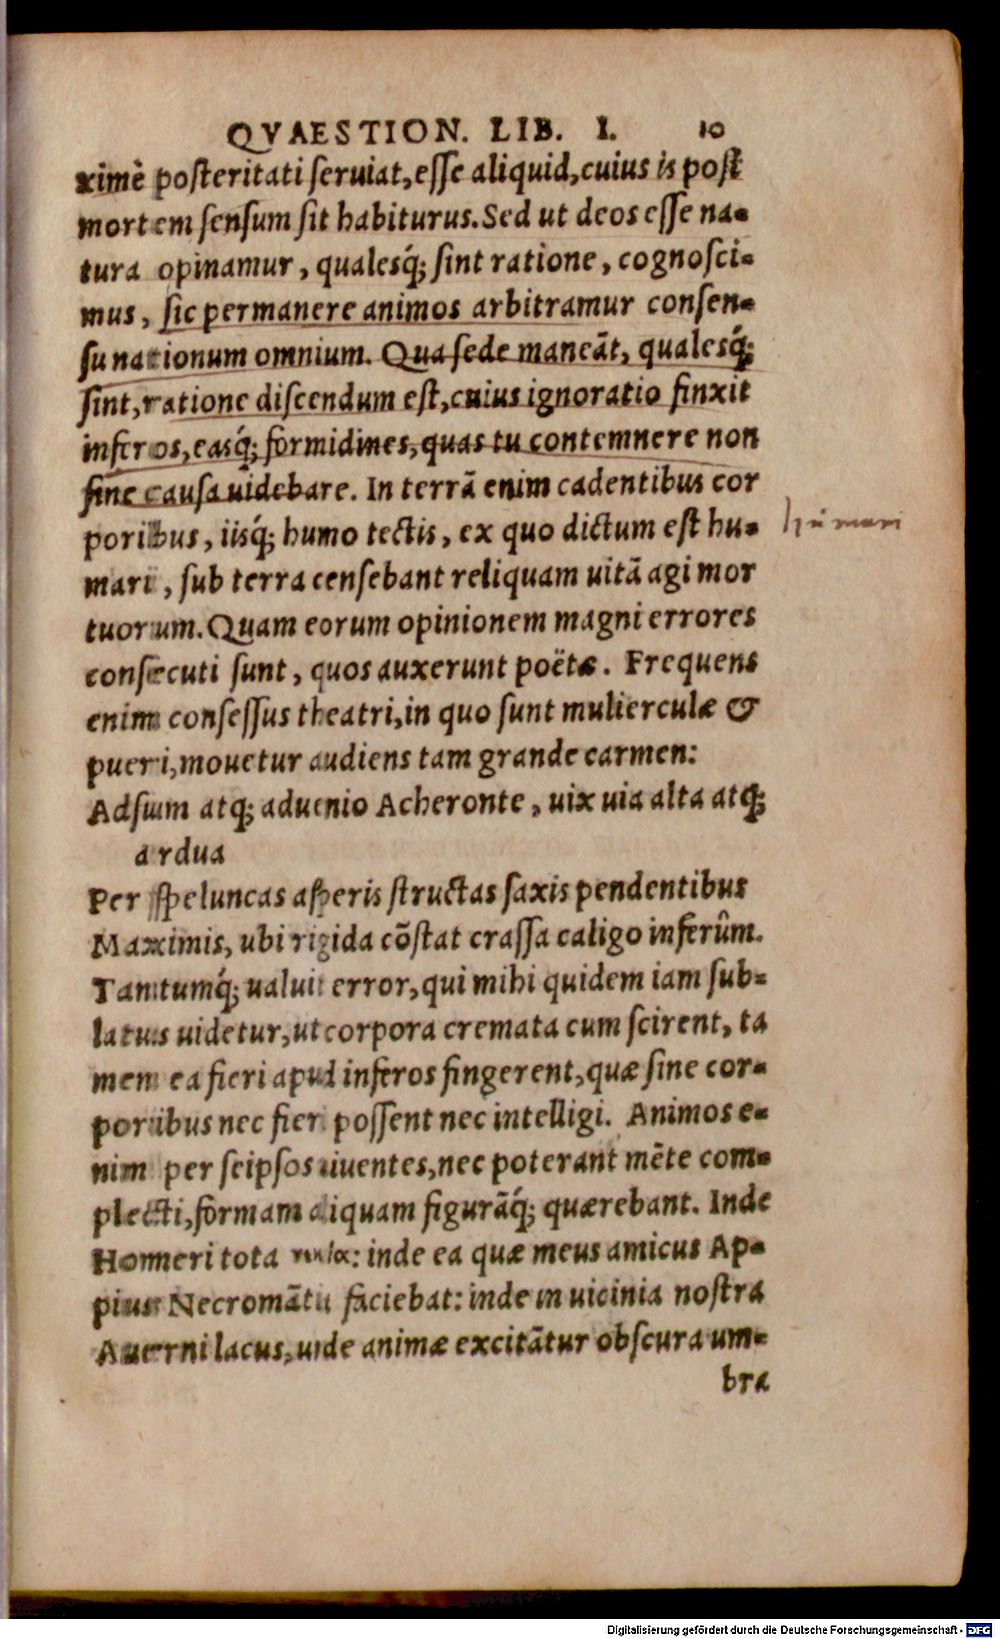 QVAESTION. LIB. I. 10
ximè posteritati seruiat, esse aliquid, cuius is post
mortem sensum sit habiturus. Sed ut deos esse na-
tura opinamur, qualesq́; sint ratione, cognosci-
mus, sic permanere animos arbitramur consen-
su nationum omnium. Qua sede maneãt, qualesq́;
sint, ratione discendum est, cuius ignoratio finxit
inferos, easq́; formidines, quas tu contemnere non
sine causa uidebare. In terrã enim cadentibus cor
poribus, iisq́; humo tectis, ex quo dictum est hu-
humari
mari, sub terra censebant reliquam uitã agi mor
tuorum. Quam eorum opinionem magni errores
consecuti sunt, quos auxerunt poëtæ. Frequens
enim consessus theatri, in quo sunt mulierculæ &
pueri, mouetur audiens tam grande carmen:
Adsum atq; aduenio Acheronte, uix uia alta atq;
ardua
Per speluncas asperis structas saxis pendentibus
Maximis, ubi rigida cõstat crassa caligo inferûm.
Tantumq́; ualuit error, qui mihi quidem iam sub-
latus uidetur, ut corpora cremata cum scirent, ta
men ea fieri apud inferos fingerent, quæ sine cor-
poribus nec fieri possent nec intelligi. Animos e-
nim per seipsos uiuentes, nec poterant mẽte com-
plecti, formam aliquam figurãq́; quærebant. Inde
Homeri tota νεκυΐα: inde ea quæ meus amicus Ap-
pius Necromãtia faciebat: inde in uicinia nostra
Auerni lacus, unde animæ excitãtur obscura um-
bra
Digitalisierung gefördert durch die Deutsche Forschungsgemeinschaft - DFG